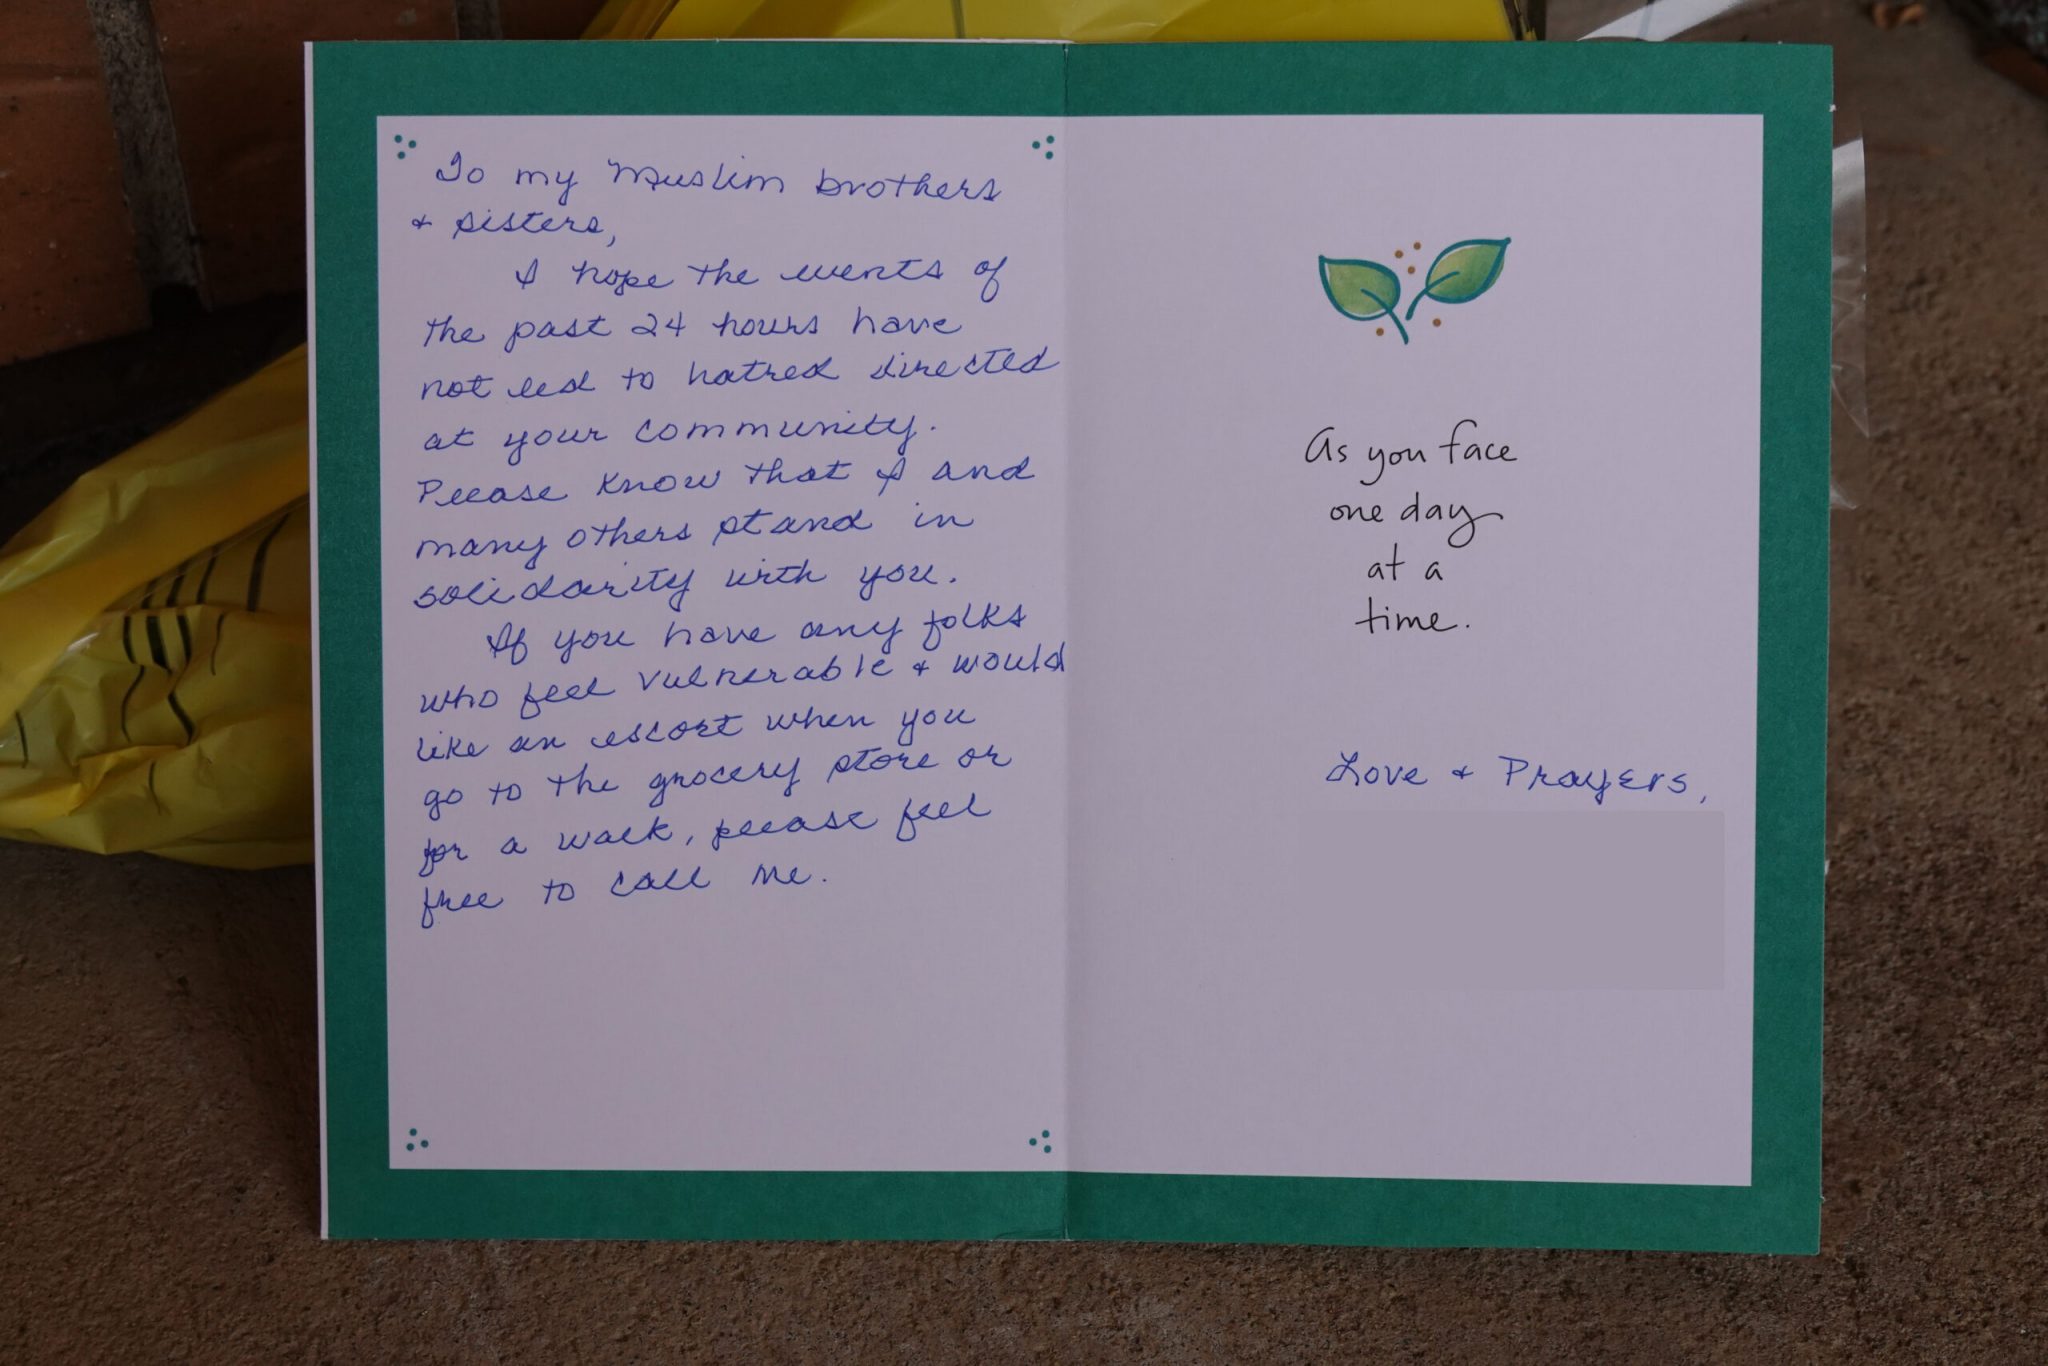 To my Muslim brothers
& sisters,
I hope the events of
the past 24 hours have
not led to hatred directed
at your community.
Please know that I and
many others stand in
solidarity with you.
If you have any folks
who feel vulnerable & would
like an escort when you
go to the grocery store or
for a walk, please feel
free to call me.
As you face
one day
at a
time.
Love & Prayers,